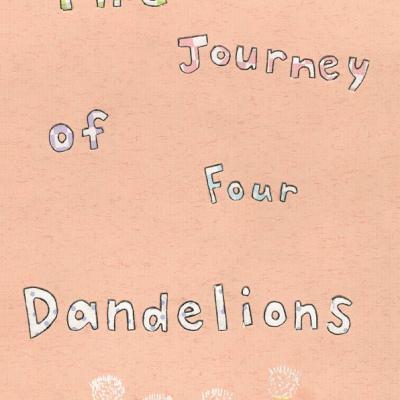 The
Journey
of
Four
Dandelions